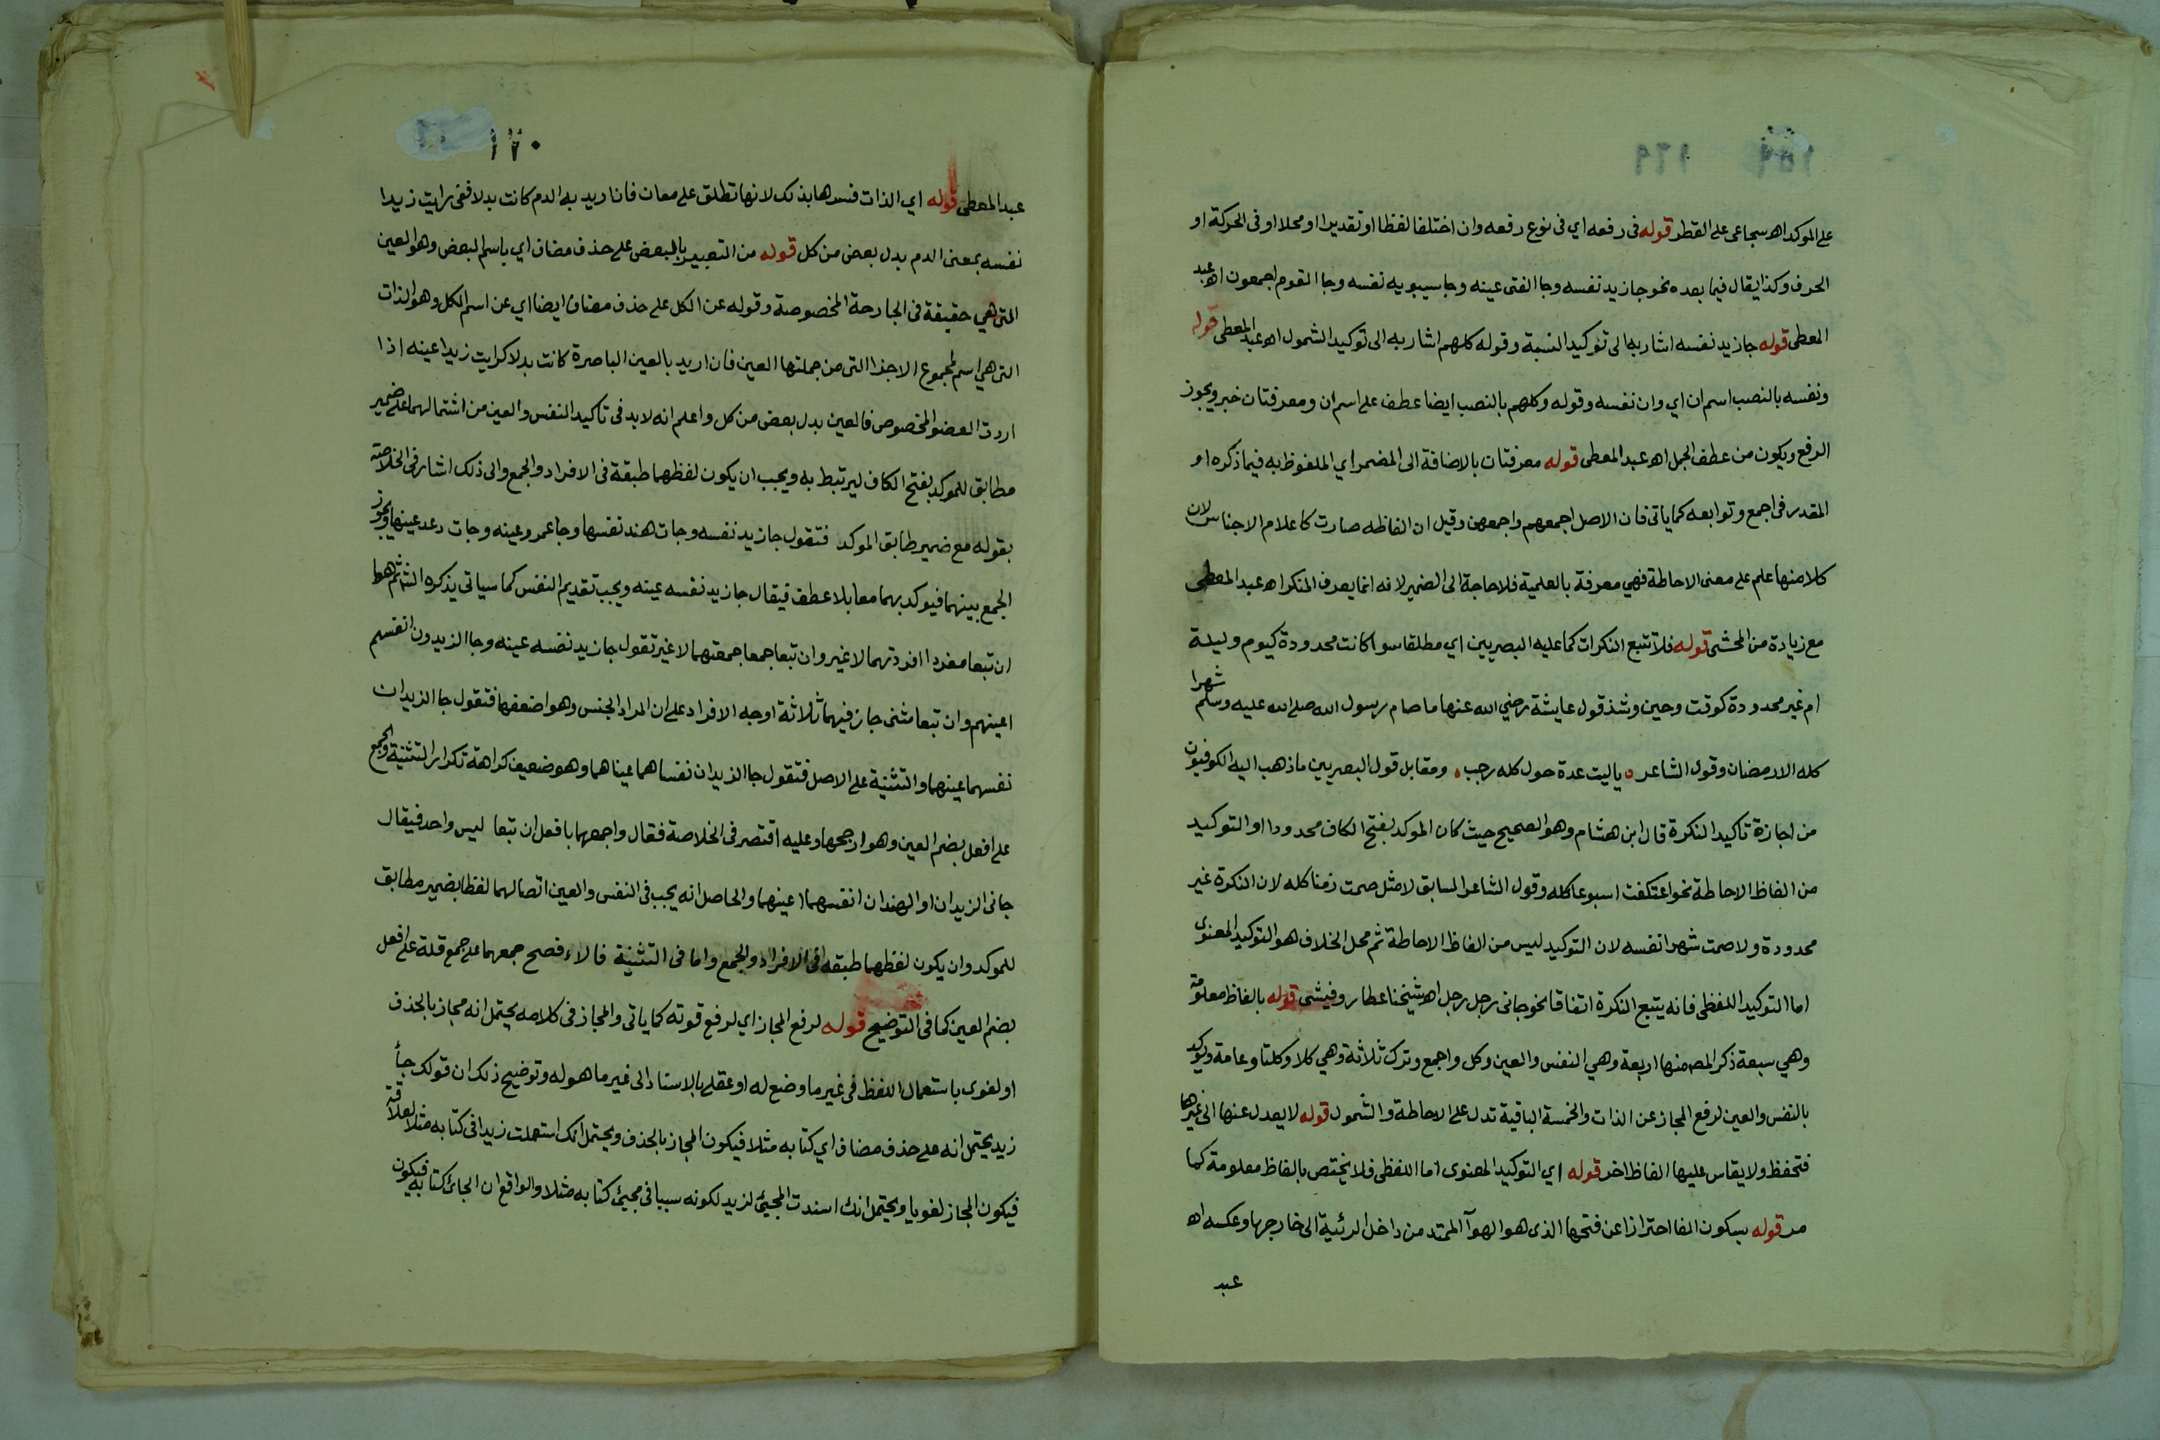 على الموكد اهـ سجاعى على القطر قوله فى رفعه اي فى نوع رفعه وان اختلفا لفظا او تقديرا او محلا او فى الحركة او
الحرف وكذا يقال فيما بعده نحو جا زيد نفسه وجا الفتى عينه وجا سيبويه نفسه وجا القوم اجمعون اهـ عبد
المعطى قوله جا زيد نفسه اشار به الى توكيد النسبة وقوله كلهم اشار به الى توكيد الشمول اهـ عبد المعطى قوله
ونفسه بالنصب اسم ان اي وان نفسه وقوله وكلهم بالنصب ايضا عطف على اسم ان ومعرفتان خبر ويجوز
الرفع ويكون من عطف الجمل اهـ عبد المعطى قوله معرفتان بالاضافة الى المضمر اي الملفوظ به فيما ذكره او
المقدر فى اجمع وتوابعه كما ياتى فان الاصل اجمعهم واجمعهن وقيل ان الفاظه صارت كاعلام الاجناس لان
كلا منها علم على معنى الاحاطة فهي معرفة بالعلمية فلا حاجة الى الضمير لانه انما يعرف المنكر اهـ عبد المعطى
مع زيادة من المحشى قوله فلا تتبع النكرات كما عليه البصريين اي مطلقا سوا كانت محدودة كيوم وليلة
ام غير محدودة كوقت وحين وشذ قول عايشة رضي الله عنها ما صام رسول الله صلى الله عليه وسلم شهرا
كله الا رمضان وقول الشاعر ه ياليت عدة حول كله رجب ه ومقابل قول البصريين ما ذهب اليه الكوفيون
من اجازة تاكيد النكرة قال ابن هشام وهو الصحيح حيث كان الموكد بفتح الكاف محدودا او التوكيد
من الفاظ الاحاطة نحو اعتكفت اسبوعا كله وقول الشاعر السابق لا مثل صمت زمنا كله لان النكرة غير
محدودة ولا صمت شهرا نفسه لان التوكيد ليس من الفاظ الاحاطة ثم محل الخلاف هو التوكيد المعنوى
اما التوكيد اللفظى فانه يتبع النكرة اتفاقا نحو جانى رجل رجل اهـ شيخنا عطار وفيشى قوله بالفاظ معلومة
وهي سبعة ذكر المصـ منها اربعة وهي النفس والعين وكل واجمع وترك ثلاثة وهي كلا وكلتا وعامة ويوكد
بالنفس والعين لرفع المجاز عن الذات والخمسة الباقية تدل على الاحاطة والشمول قوله لا يعدل عنها الى غيرها
فتحفظ ولا يقاس عليها الفاظ اخر قوله اي التوكيد المعنوى اما اللفظى فلا يختص بالفاظ معلومة كما
مر قوله بسكون الفا احترازا عن فتحها الذى هو الهوآ الممتد من داخل الرئية الى خارجها وعكسه اهـ
عبد
١٢٠
عبد المعطى قوله اي الذات فسرها بذلك لانها تطلق على معان فان اريد به الدم كانت بدلا ففى رايت زيدا
نفسه بمعنى الدم بدل بعض من كل قوله من التعبير بالبعض على حذف مضاف اي باسم البعض وهو العين
التى هي حقيقة فى الجارحة المخصوصة وقوله عن الكل على حذف مضاف ايضا اي عن اسم الكل وهو الذات
التى هي اسم لمجموع الاجزا التى من جملتها العين فان اريد بالعين الباصرة كانت بدلا كرايت زيدا عينه اذا
اردت العضو المخصوص فالعين بدل بعض من كل واعلم انه لابد فى تاكيد النفس والعين من اشتمالهما على ضمير
مطابق للموكد بفتح الكاف ليرتبط به ويجب ان يكون لفظهما طبقة فى الافراد والجمع والى ذلك اشار فى الخلاصة
بقوله مع ضمير طابق الموكد فتقول جا زيد نفسه وجات هند نفسها وجا عمرو عينه وجات دعد عينها ويجوز
الجمع بينهما فيوكد بهما معا بلا عطف فيقال جا زيد نفسه عينه ويجب تقديم النفس كما سياتى يذكره الشـ ثم هما
ان تبعا مفردا افردتهما لا غير وان تبعا جمعا جمعتهما لا غير تقول جا زيد نفسه عينه وجا الزيدون انفسهم
اعينهم وان تبعا مثنى جاز فيهما ثلاثة اوجه الافراد على ان المراد الجنس وهو اضعفها فتقول جا الزيدان
نفسهما عينهما والتثنية على الاصل فتقول جا الزيدان نفساهما عيناهما وهو ضعيف كراهة تكرار التثنية والجمع
على افعل بضم العين وهو ارجحها وعليه اقتصر فى الخلاصة فقال واجمعهما بافعل ان تبعا ليس واحد فيقال
جانى الزيدان او الهندان انفسهما اعينهما والحاصل انه يجب فى النفس والعين اتصالهما لفظا بضمير مطابق
للموكد وان يكون لفظهما طبقه فى الافراد والجمع واما فى التثنية فالاء فصح جمعهما على جمع قلة على افعل
بضم العين كما فى التوضيح قوله لرفع المجاز اي لرفع قوته كما ياتى والمجاز فى كلامه يحتمل انه مجاز بالحذف
او لغوى باستعمال اللفظ فى غير ما وضع له او عقلى بالاسناد الى غير ما هو له وتوضيح ذلك ان قولك جأ
زيد يحتمل انه على حذف مضاف اي كتابه مثلا فيكون المجاز بالحذف ويحتمل انك استعملت زيدا فى كتابه مثلا لعلاقة
فيكون المجاز لغويا ويحتمل انك اسندت المجيئ لزيد لكونه سببا فى مجيئ كتابه مثلا والواقع ان الجائ كتابه فيكون